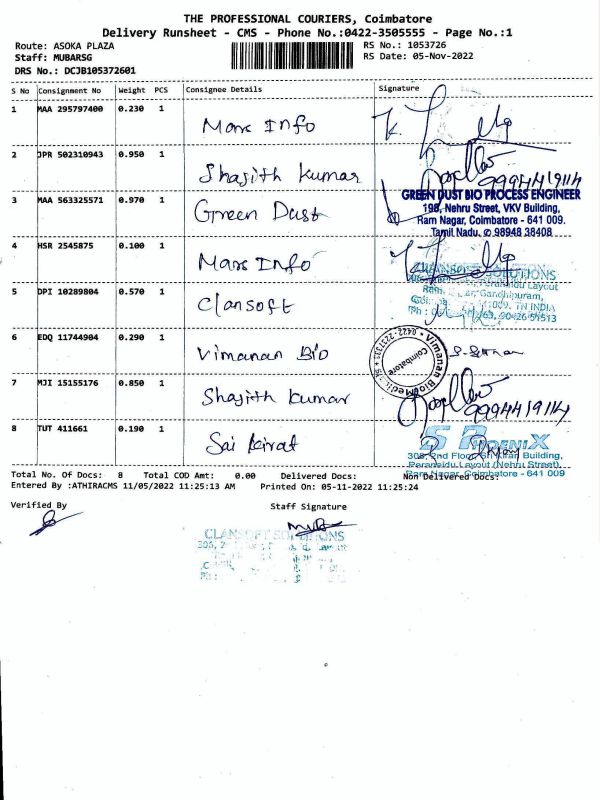 THE PROFESSIONAL COURIERS, Coimbatore
Delivery Runsheet - CMS - Phone No.:0422-3505555 - Page No.:1
Route: ASOKA PLAZA
RS No.: 1053726
Staff: MUBARSG
RS Date: 05-Nov-2022
DRS No.: DCJB105372601
S No Consignment No Weight PCS Consignee Details Signature
1 MAA 295797400 0.230 1 Mars Info
2 JPR 502310943 0.950 1 Shajith Kumar
3 MAA 563325571 0.970 1 Green Dust
GREEN DUST BIO PROCESS ENGINEER
198, Nehru Street, VKV Building,
Ram Nagar, Coimbatore - 641 009.
Tamil Nadu. ✆ 98948 38408
4 HSR 2545875 0.100 1 Mars Info
CLANSOFT SOLUTIONS
5 DPI 10289804 0.570 1 Clansoft
6 EDQ 11744904 0.290 1 Vimanan Bio
7 MJI 15155176 0.850 1 Shajith Kumar
8 TUT 411661 0.190 1 Sai Kirat
PHOENIX
Peranaidu Layout (Nehru Street),
Ram Nagar, Coimbatore - 641 009
Total No. Of Docs: 8 Total COD Amt: 0.00 Delivered Docs: Non Delivered Docs:
Entered By :ATHIRACMS 11/05/2022 11:25:13 AM Printed On: 05-11-2022 11:25:24
Verified By Staff Signature
CLANSOFT SOLUTIONS